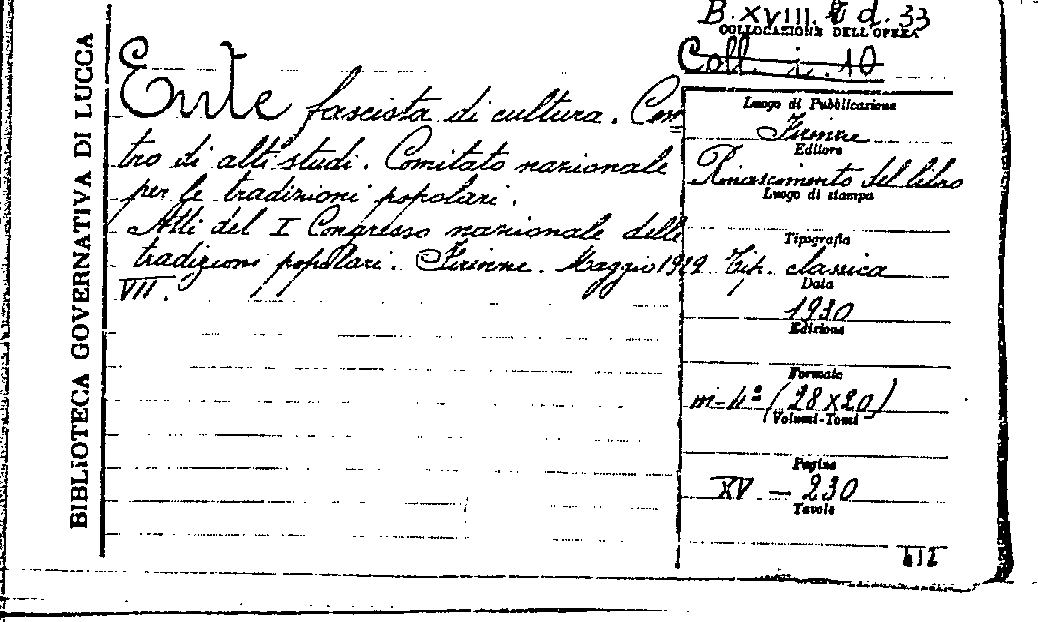 BIBLIOTECA GOVERNATIVA DI LUCCA
B. XVIII. d. 33
COLLOCAZIONE DELL'OPERA
Coll. i. 10
Ente fascista di cultura. Cen
tro di alti studi. Comitato nazionale
per le tradizioni popolari.
Atti del I Congresso nazionale delle
tradizioni popolari. Firenze. Maggio 1929
VII.
Luogo di Pubblicazione
Firenze
Editore
Rinascimento del libro
Luogo di stampa
Tipografia
Tip. classica
Data
1930
Edizione
Formato
in-4º (28x20)
Volumi-Tomi
Pagine
XV - 230
Tavole